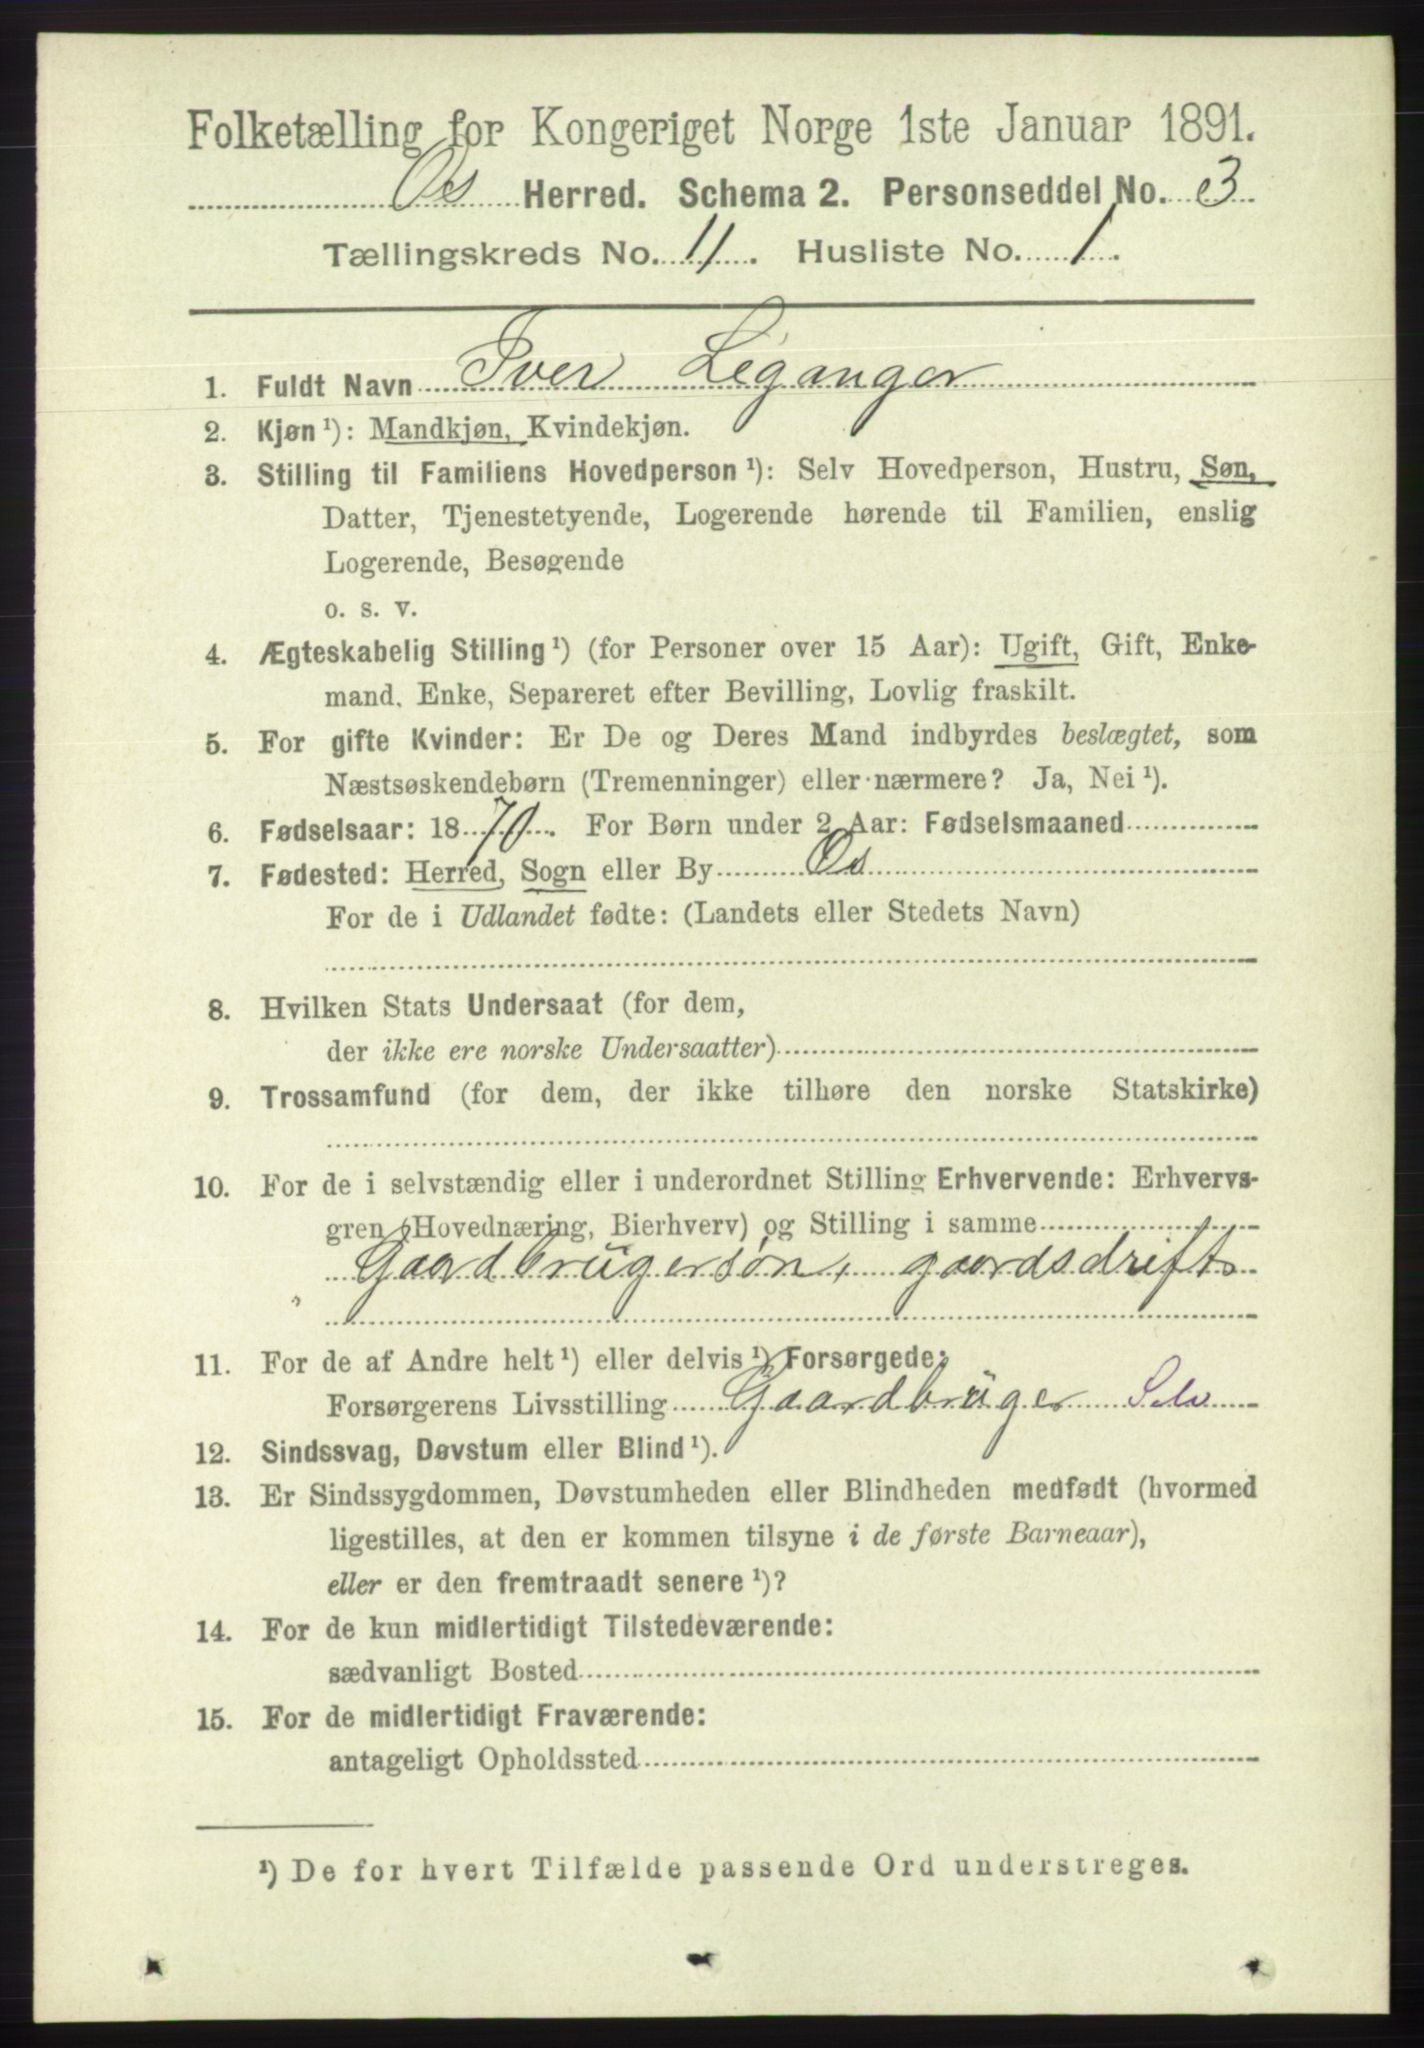 Folketælling for Kongeriget Norge 1ste Januar 1891.
Os Herred. Schema 2. Personseddel No. 3
Tællingskreds No. 11. Husliste No. 1.
1. Fuldt Navn Iver Leganger
2. Kjøn ¹): Mandkjøn, Kvindekjøn.
3. Stilling til Familiens Hovedperson ¹): Selv Hovedperson, Hustru, Søn,
Datter, Tjenestetyende, Logerende hørende til Familien, enslig
Logerende, Besøgende
o. s. v.
4. Ægteskabelig Stilling ¹) (for Personer over 15 Aar): Ugift, Gift, Enke-
mand, Enke, Separeret efter Bevilling, Lovlig fraskilt.
5. For gifte Kvinder: Er De og Deres Mand indbyrdes beslægtet, som
Næstsøskendebørn (Tremenninger) eller nærmere? Ja, Nei ¹).
6. Fødselsaar: 1870. For Børn under 2 Aar: Fødselsmaaned
7. Fødested: Herred, Sogn eller By Os
For de i Udlandet fødte: (Landets eller Stedets Navn)
8. Hvilken Stats Undersaat (for dem,
der ikke ere norske Undersaatter)
9. Trossamfund (for dem, der ikke tilhøre den norske Statskirke)
10. For de i selvstændig eller i underordnet Stilling Erhvervende: Erhvervs-
gren (Hovednæring, Bierhverv) og Stilling i samme
Gaardbrugersøn, gaardsdrift
11. For de af Andre helt ¹) eller delvis ¹) Forsørgede:
Forsørgerens Livsstilling Gaardbruger Selv
12. Sindssvag, Døvstum eller Blind ¹).
13. Er Sindssygdommen, Døvstumheden eller Blindheden medfødt (hvormed
ligestilles, at den er kommen tilsyne i de første Barneaar),
eller er den fremtraadt senere ¹)?
14. For de kun midlertidigt Tilstedeværende:
sædvanligt Bosted
15. For de midlertidigt Fraværende:
antageligt Opholdssted
¹) De for hvert Tilfælde passende Ord understreges.